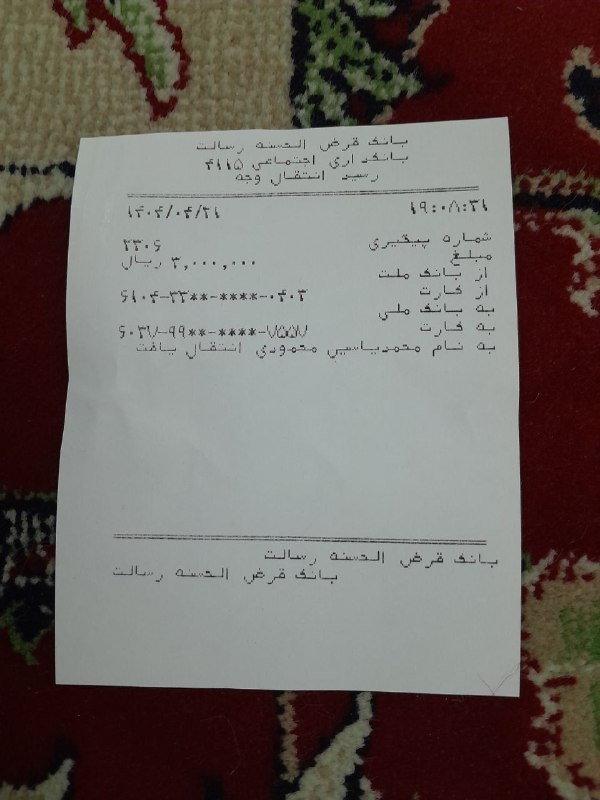 بانک قرض الحسنه رسالت
بانکداری اجتماعی ۴۱۱۵
رسید انتقال وجه
۱۹:۰۸:۳۱ ۱۴۰۴/۰۴/۳۱
شماره پیگیری ۲۳۰۶
مبلغ ۳,۰۰۰,۰۰۰ ریال
از بانک ملت
از کارت ۶۱۰۴-۳۳**-****-۰۴۰۳
به بانک ملی
به کارت ۶۰۳۷-۹۹**-****-۷۵۵۷
به نام محمدیاسین محمودی انتقال یافت
بانک قرض الحسنه رسالت
بانک قرض الحسنه رسالت